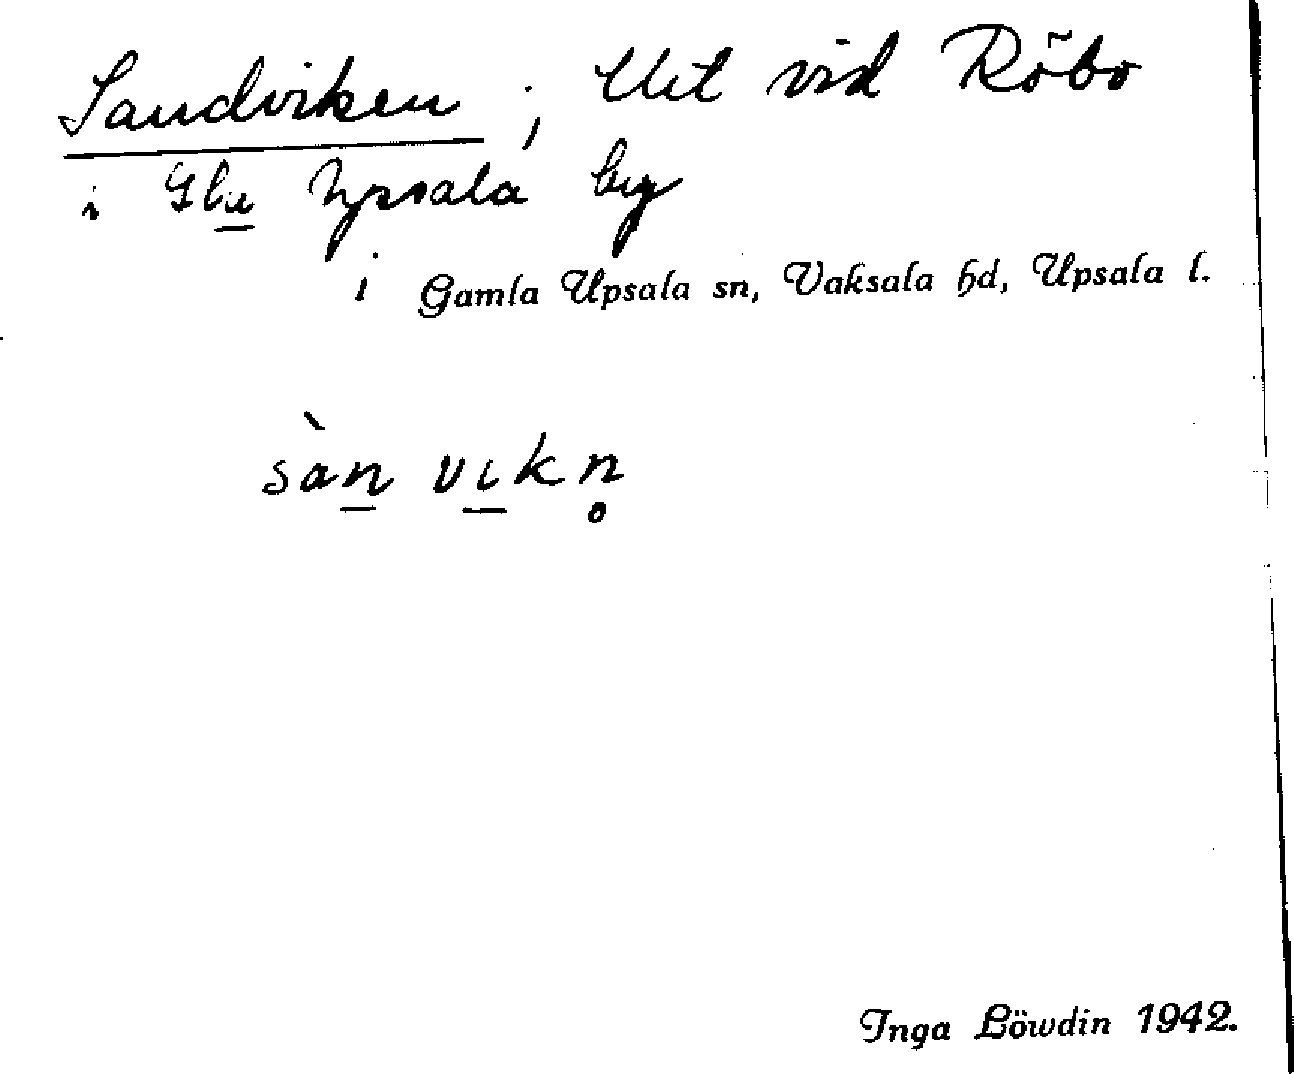 Sandviken ; Uet vid Röbo
i Gla Upsala by
i Gamla Upsala sn, Vaksala hd, Upsala l.
sàn vikn̥
Inga Löwdin 1942.